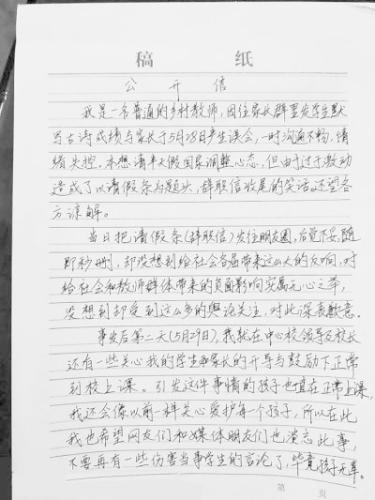 稿 纸
公开信
我是一名普通的乡村教师,因往家长群里发学生默
写古诗成绩与家长于5月28日产生误会,一时沟通不畅,情
绪失控。本想请半天假回家调整心态,但由于过于激动
造成了以请假条为题头,辞职信收尾的笑话。还望各
方谅解。
当日把请假条(辞职信)发往朋友圈,后觉不妥,随
即秒删,却没想到给社会各界带来这么大的反响,对
给社会和教师群体带来的负面影响实属无心之举,
没想到却受到这么多的舆论关注,对此深表歉意。
事发后第二天(5月29日),我就在中心校领导及校长
还有一些关心我的学生和家长的开导与鼓励下正常
到校上课。引发这件事情的孩子也一直在正常上课,
我还会像以前一样关心爱护每个孩子,所以在此
我也希望网友们和媒体朋友们也淡忘此事,
不要再有一些伤害当事学生的言论了,毕竟孩子无辜。
第 页